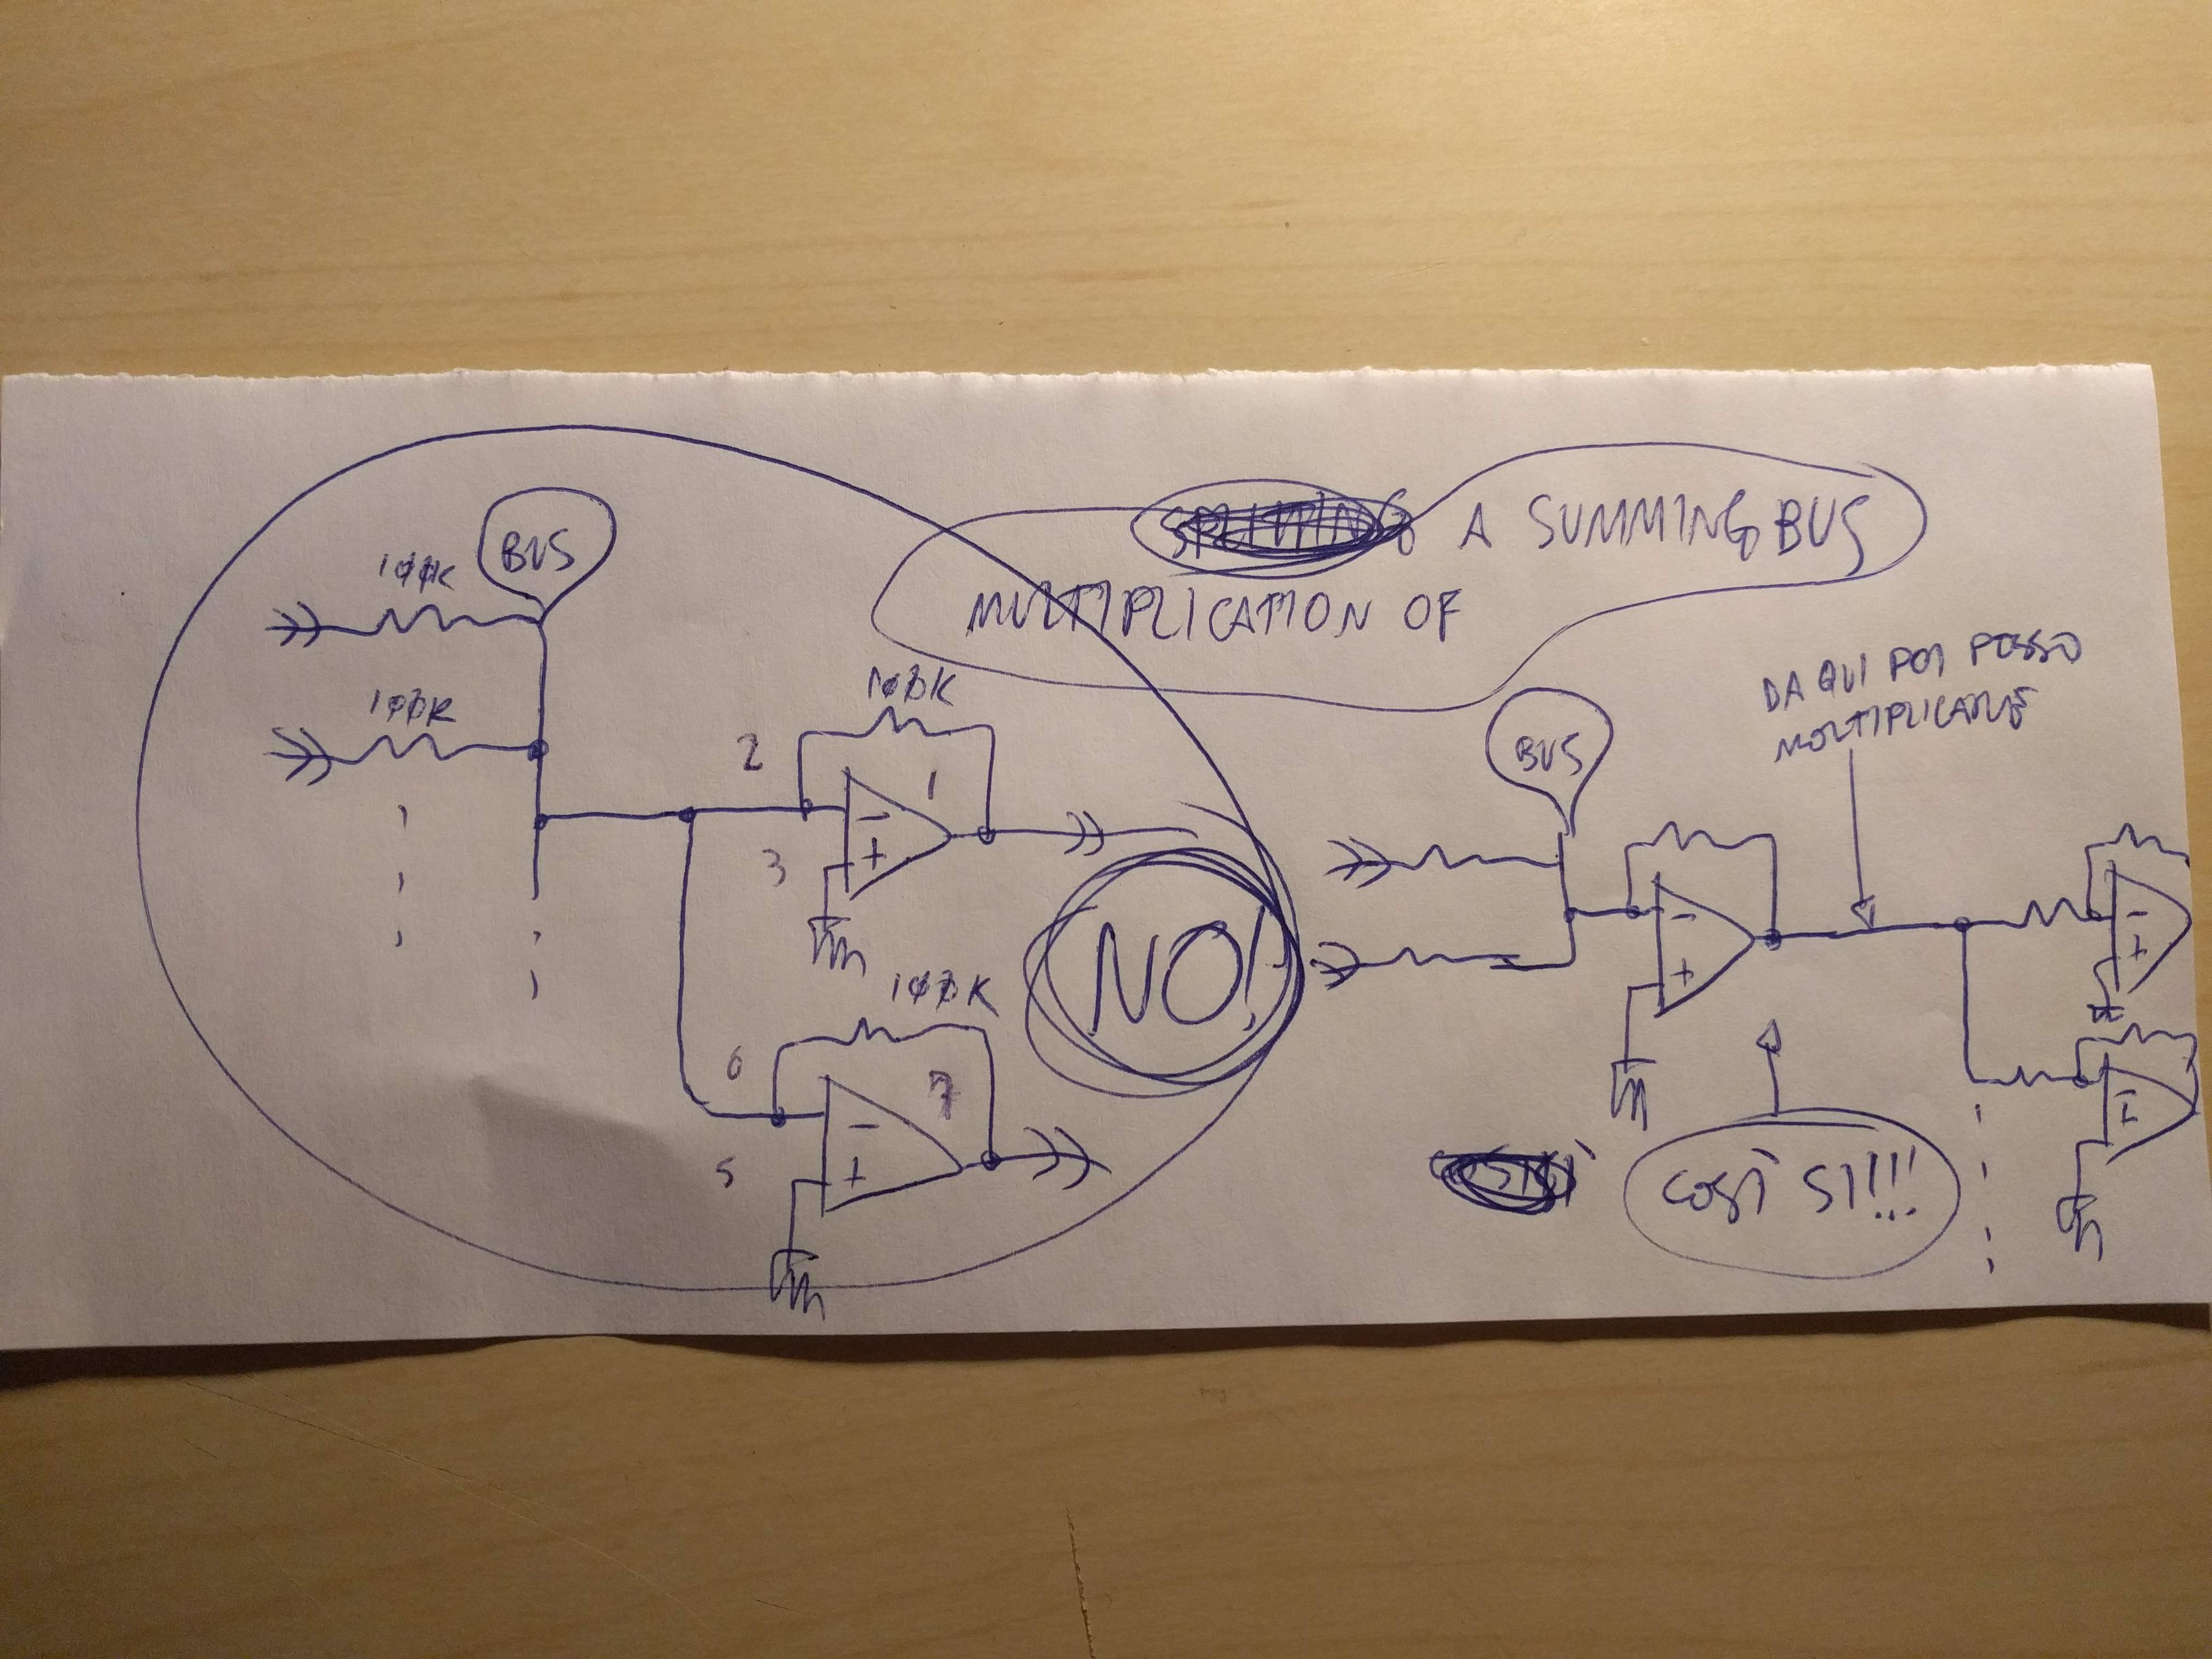 SPLITTING A SUMMING BUS
MULTIPLICATION OF
BUS
100K
100K
100K
2
1
3
100K
6
7
5
NO!
BUS
DA QUI POI POSSO
MOLTIPLICARE
COSÌ SÌ!!!